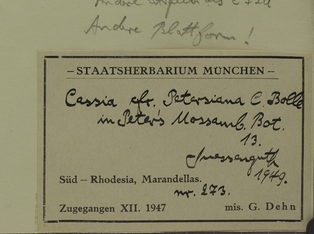 Andere
Andere Blattform!
– STAATSHERBARIUM MÜNCHEN –
Cassia cfr. Petersiana C. Bolle
in Peters Mossamb. Bot.
13.
Suessenguth
1949.
Süd – Rhodesia, Marandellas.
nr. 273.
Zugegangen XII. 1947 mis. G. Dehn